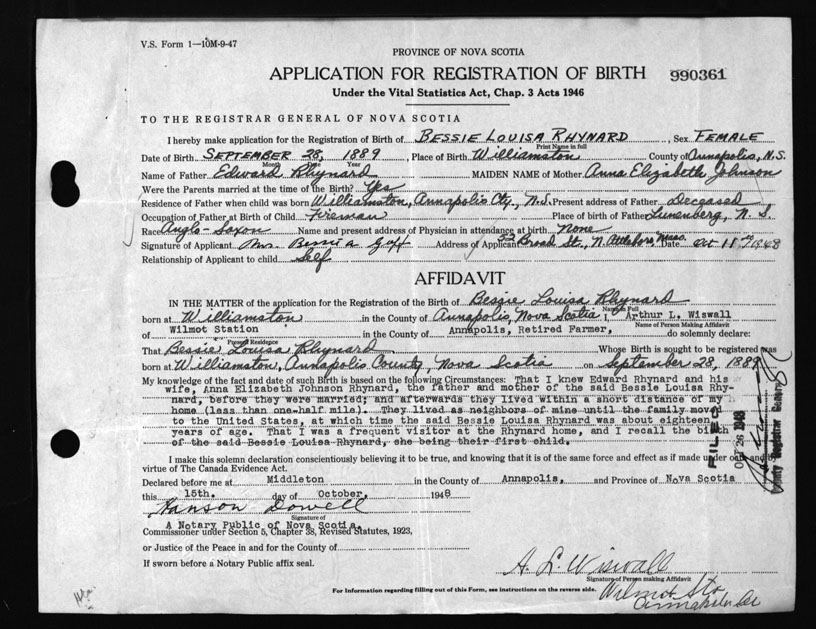 V.S. Form 1—10M-9-47
PROVINCE OF NOVA SCOTIA
APPLICATION FOR REGISTRATION OF BIRTH 990361
Under the Vital Statistics Act, Chap. 3 Acts 1946
TO THE REGISTRAR GENERAL OF NOVA SCOTIA
I hereby make application for the Registration of Birth of BESSIE LOUISA RHYNARD, Sex FEMALE
Print Name in full
Date of Birth SEPTEMBER 28, 1889, Place of Birth Williamston County of Annapolis, N.S.
Month Date Year
Name of Father Edward Rhynard MAIDEN NAME of Mother Anna Elizabeth Johnson
Were the Parents married at the time of the Birth? Yes
Residence of Father when child was born Williamston, Annapolis Cty., N.S. Present address of Father Deceased
Occupation of Father at Birth of Child Fireman Place of Birth of Father Lunenberg, N. S.
Race Anglo-Saxon Name and present address of Physician in attendance at birth None
Signature of Applicant Mrs. Bessie A Goff Address of Applicant 52 Broad St., N. Attleboro, Mass. Date Oct 11th 1948
Relationship of Applicant to child Self
AFFIDAVIT
IN THE MATTER of the application for the Registration of the Birth of Bessie Louisa Rhynard
Name in Full
born at Williamston in the County of Annapolis, Nova Scotia I, Arthur L. Wiswall
Name of Person Making Affidavit
of Wilmot Station in the County of Annapolis, Retired Farmer, do solemnly declare:
Present Residence
That Bessie Louisa Rhynard Whose Birth is sought to be registered was
born at Williamston, Annapolis County, Nova Scotia on September 28, 1889
My knowledge of the fact and date of such Birth is based on the following Circumstances: That I knew Edward Rhynard and his
wife, Anna Elizabeth Johnson Rhynard, the father and mother of the said Bessie Louisa Rhy-
nard, before they were married; and afterwards they lived within a short distance of my
home (less than one-half mile). They lived as neighbors of mine until the family moved
to the United States, at which time the said Bessie Louisa Rhynard was about eighteen
years of age. That I was a frequent visitor at the Rhynard home, and I recall the birth
of the said Bessie Louisa Rhynard, she being their first child.
FILED
OCT 26 1948
Deputy Registrar General
I make this solemn declaration conscientiously believing it to be true, and knowing that it is of the same force and effect as if made under oath and by
virtue of The Canada Evidence Act.
Declared before me at Middleton in the County of Annapolis, and Province of Nova Scotia
this 15th. day of October, 1948
Hanson Dowell
Signature of
A Notary Public of Nova Scotia.
Commissioner under Section 5, Chapter 38, Revised Statutes, 1923,
or Justice of the Peace in and for the County of
If sworn before a Notary Public affix seal.
A. L. Wiswall
Signature of Person making Affidavit
Wilmot Sta
Annapolis Co
For Information regarding filling out of this Form, see instructions on the reverse side.